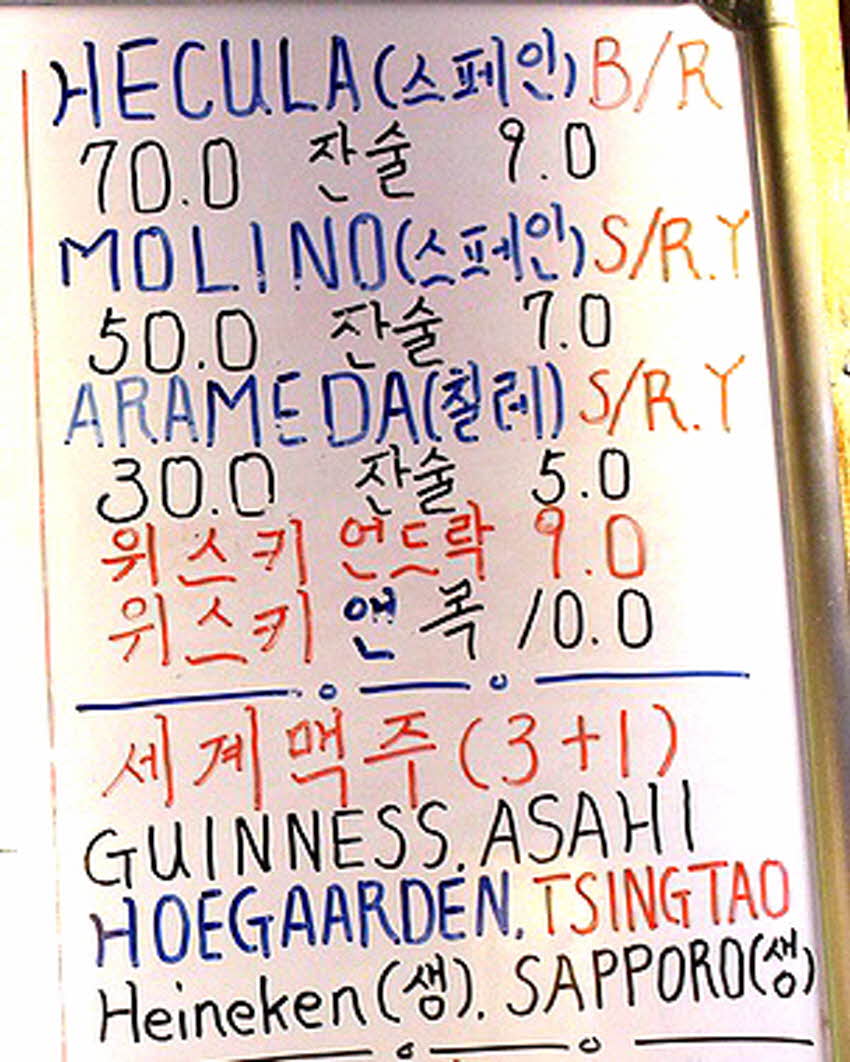 HECULA(스페인)B/R
70.0 잔술 9.0
MOLINO(스페인)S/R.Y
50.0 잔술 7.0
ARAMEDA(칠레)S/R.Y
30.0 잔술 5.0
위스키 언드락 9.0
위스키 앤 콕 10.0
세계맥주(3+1)
GUINNESS.ASAHI
HOEGAARDEN.TSINGTAO
Heineken(생).SAPPORO(생)